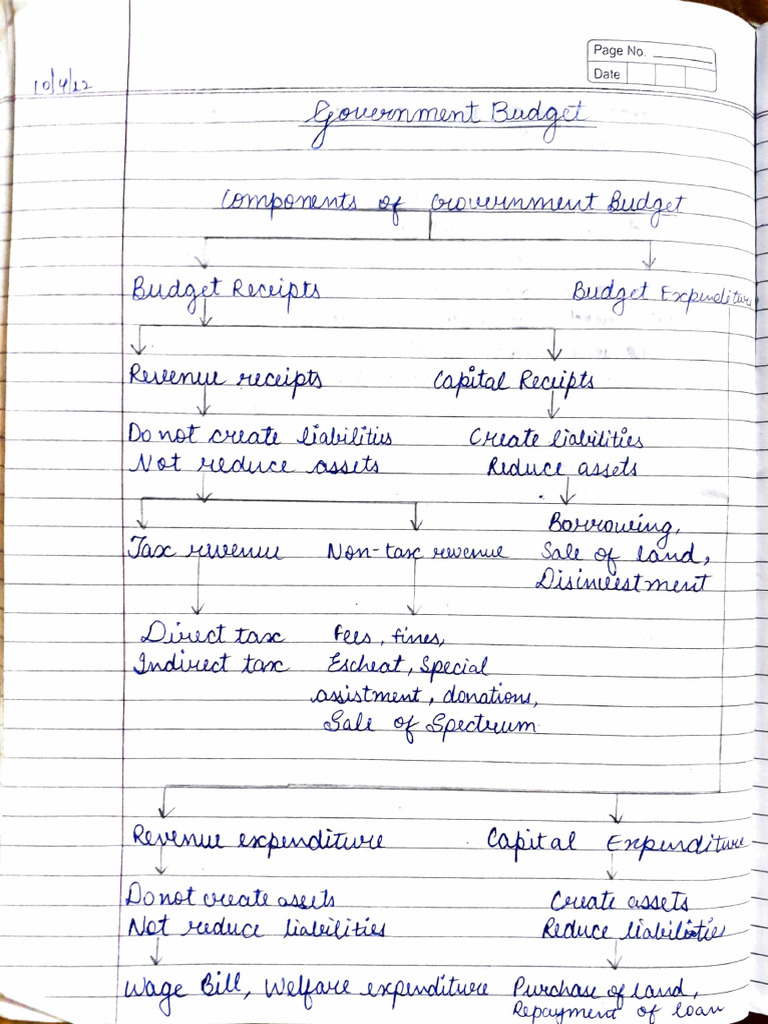 Page No.
Date
10/4/22
Government Budget
Components of Government Budget
Budget Receipts Budget Expenditure
Revenue receipts Capital Receipts
Do not create liabilities Create liabilities
Not reduce assets Reduce assets
Borrowing,
Tax revenue Non-tax revenue Sale of land,
Disinvestment
Direct tax Fees, fines,
Indirect tax Escheat, Special
assistment, donations,
Sale of Spectrum
Revenue expenditure Capital Expenditure
Do not create assets Create assets
Not reduce liabilities Reduce liabilities
Wage Bill, Welfare expenditure Purchase of land,
Repayment of loan